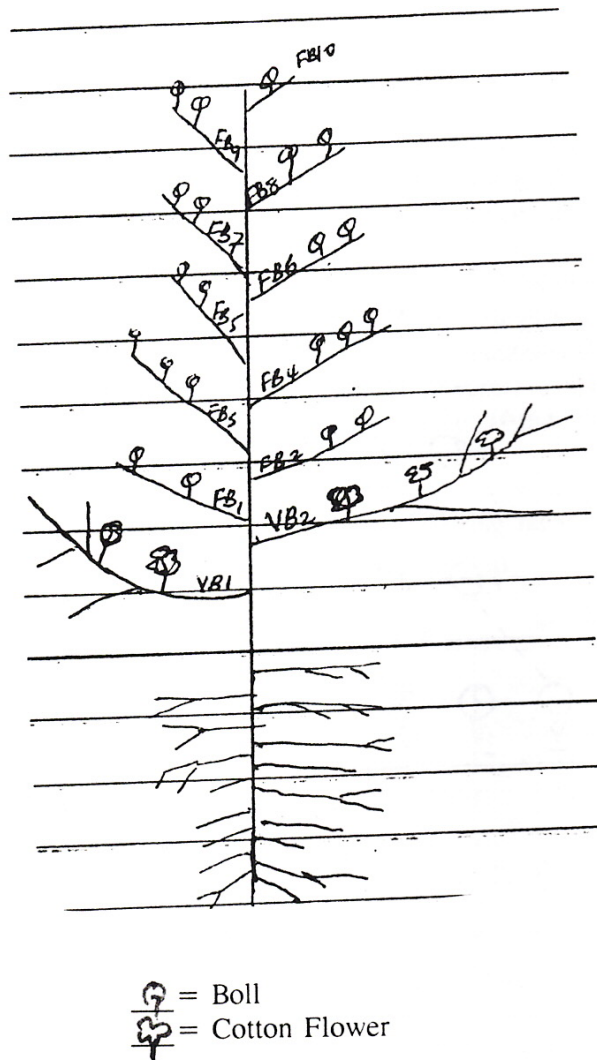 FB10
FB9
FB8
FB7
FB6
FB5
FB4
FB3
FB2
FB1
VB2
VB1
= Boll
= Cotton Flower